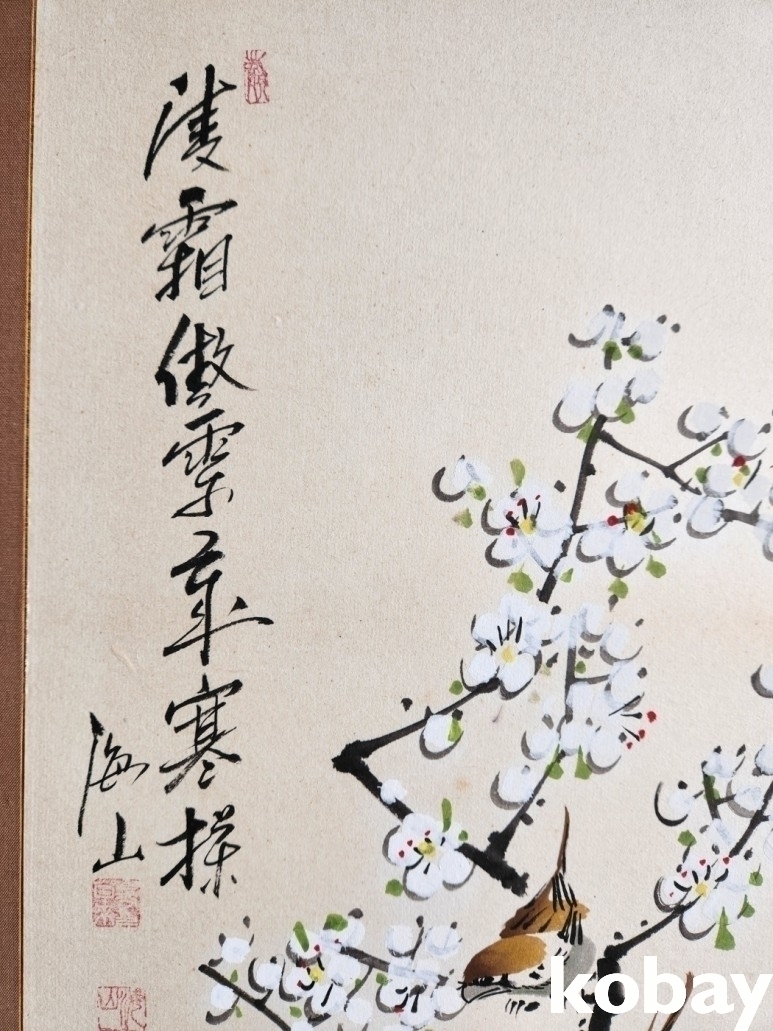 凌霜傲雪歲寒操
海山
kobay